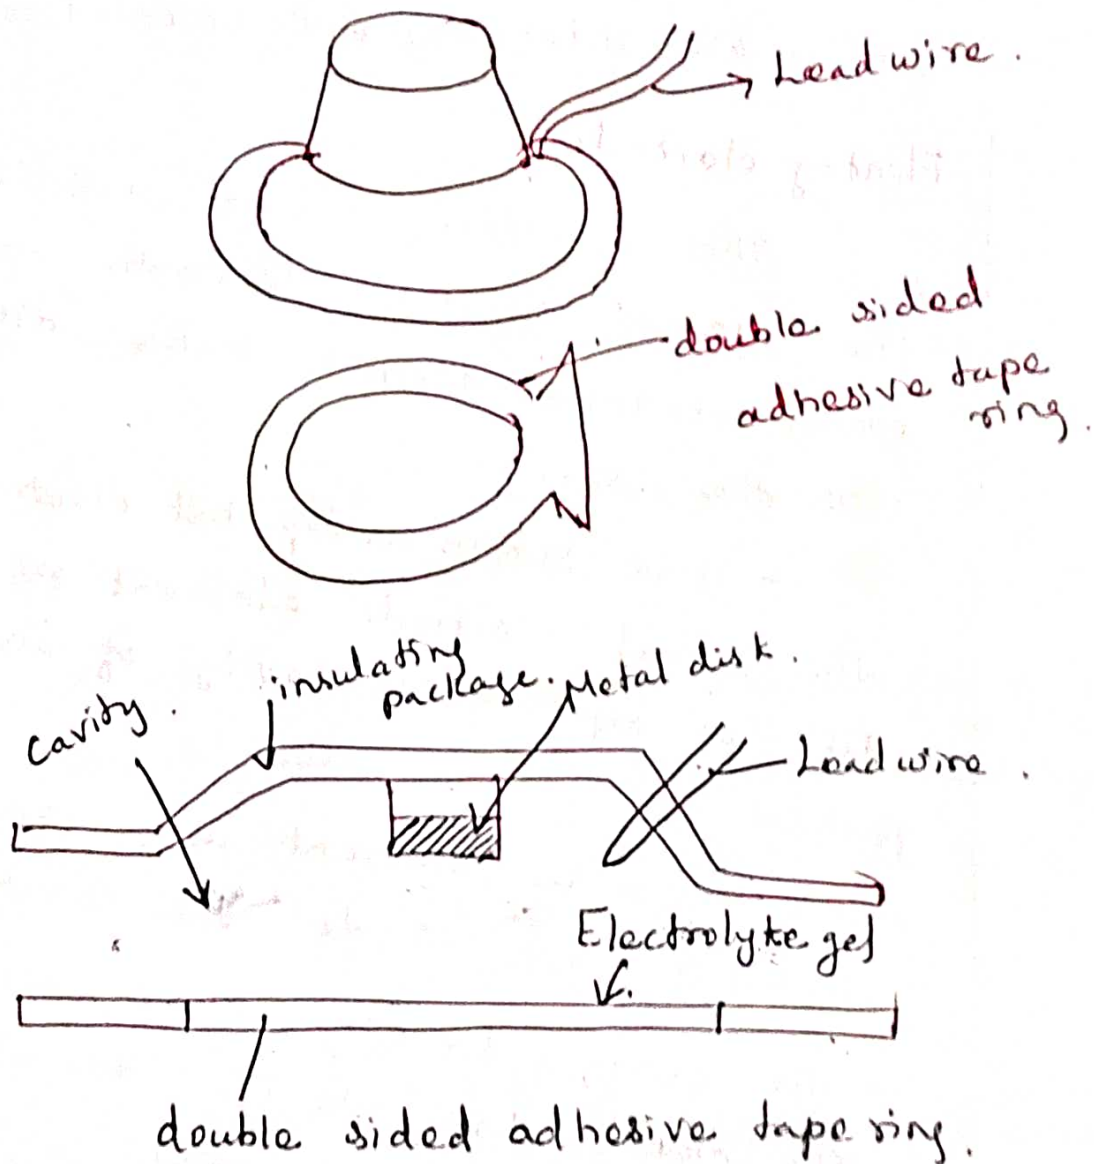 Lead wire.
double sided
adhesive tape
ring.
insulating
package.
Metal disk.
Cavity.
Lead wire.
Electrolyte gel
double sided adhesive tape ring.